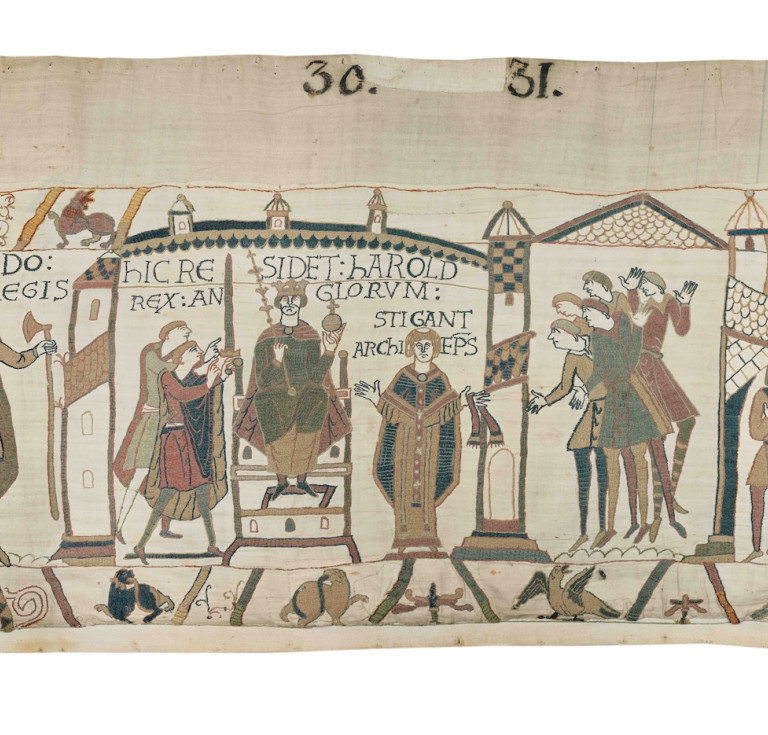 30. 31.
DO:
EGIS
hIC RE SIDET: hAROLD
REX: AN GLORVM:
STIGANT
ARChI EPS